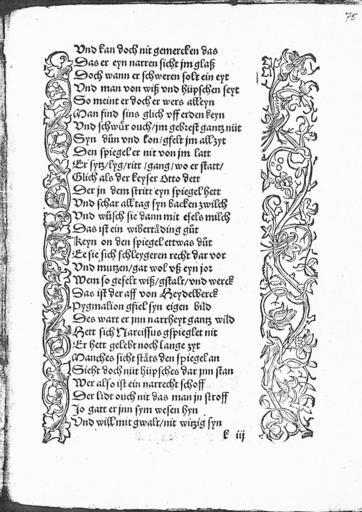 75
Vnd kan doch nit gemercken das
Das er eyn narren sicht jm glaß
Doch wann er schweren solt ein eyt
Vnd man von wiß vnd hüpschen seyt
So meint er doch er wers alleyn
Man find sins glich vff erden keyn
Vnd schwür ouch / jm gebrest gantz nüt
Syn dün vnd lon / gfelt jm allzyt
Den spiegel er nit von jm latt
Er sytz / lyg / ritt / gang / wo er statt /
Glich als der keyser Otto dett
Der jn dem stritt eyn spiegel hett
Vnd schar all tag syn backen zwilch
Vnd wüsch sie dann mit esels milch
Das ist ein wibertäding güt
Keyn on den spiegel ettwas düt
Ee sie sich schleygeren recht dar vor
Vnd mutzen / gat wol vß eyn jor
Wem so gefelt wiß / gstalt / vnd werck
Das ist der aff von Heydelberck
Pygmalion gfiel syn eigen bild
Des wart er jnn narrheyt gantz wild
Hett sich Narcissus gspieglet nit
Er hett gelebt noch lange zyt
Manches sicht stäts den spiegel an
Sicht doch nüt hüpsches dar jnn stan
Wer also ist ein narrecht schoff
Der lidt ouch nit das man jn stroff
Jo gatt er jnn sym wesen hyn
Vnd will mit gwalt / nit witzig syn
k iij